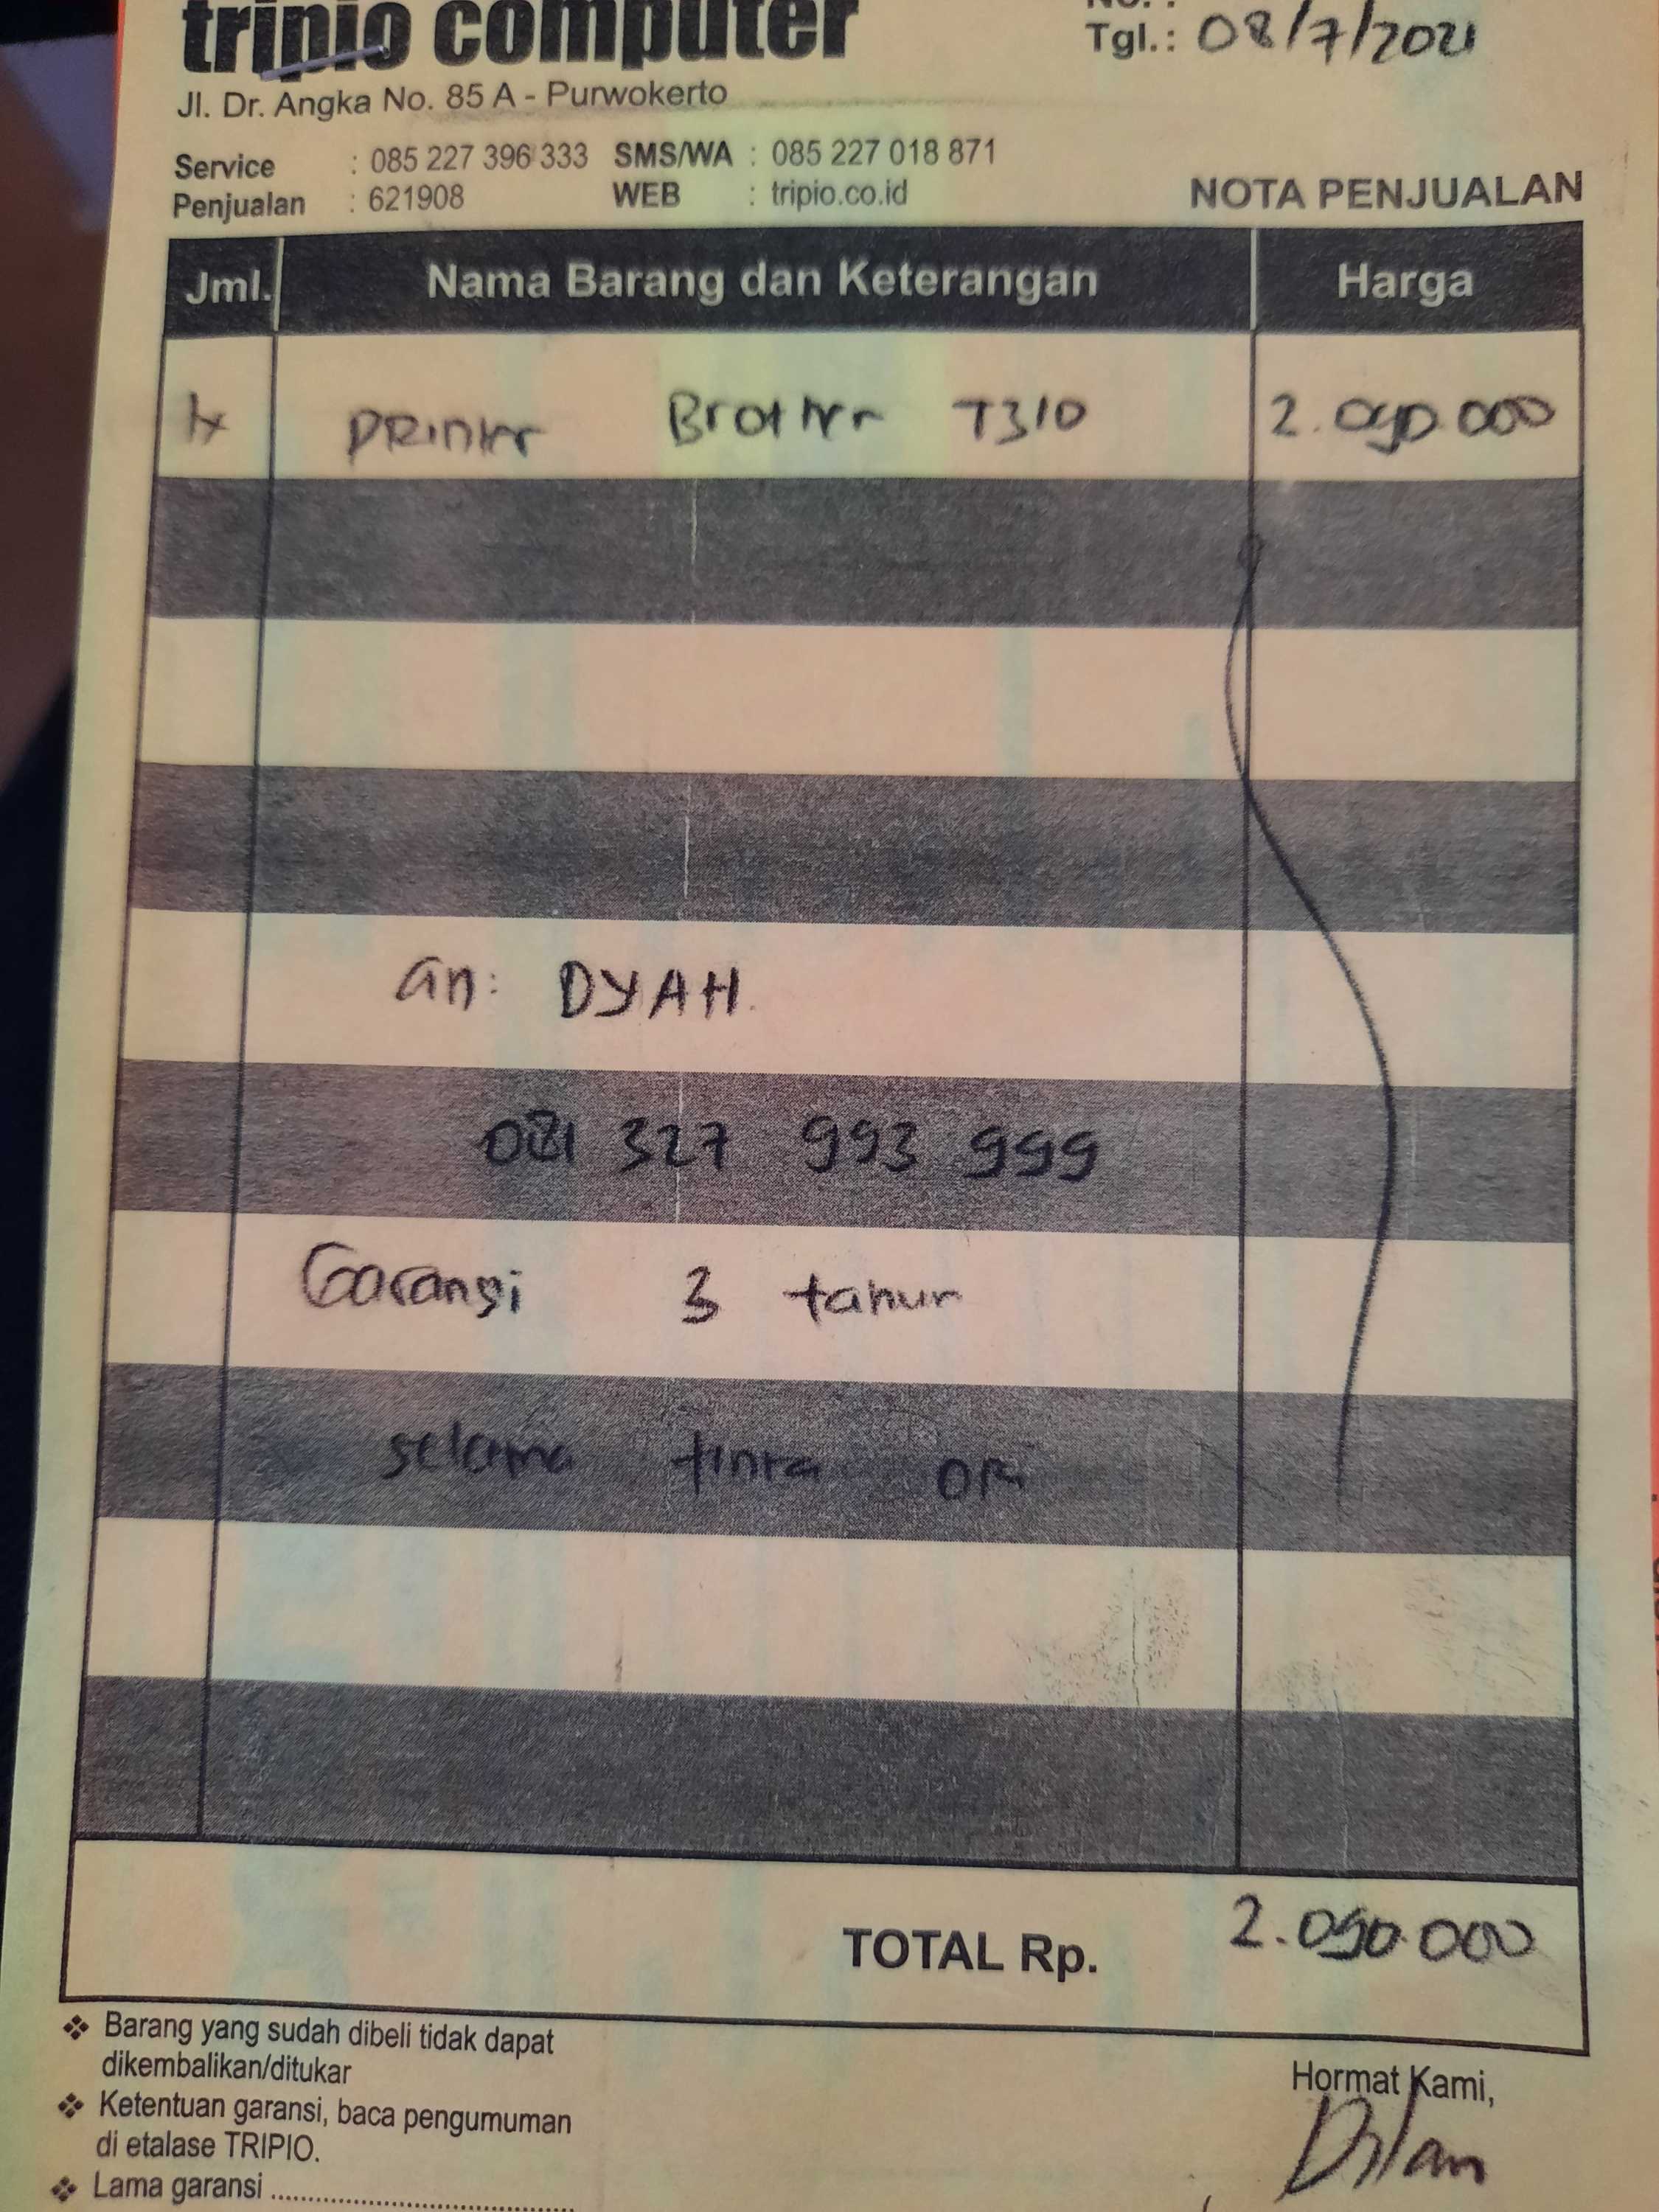 tripio computer
No. :
Tgl.: 08/7/2021
Jl. Dr. Angka No. 85 A - Purwokerto
Service : 085 227 396 333 SMS/WA : 085 227 018 871
Penjualan : 621908 WEB : tripio.co.id
NOTA PENJUALAN
Jml. Nama Barang dan Keterangan Harga
1x Printer Brother T310 2.090.000
an: DYAH.
081 327 993 999
Garansi 3 tahun
selama tinta ori
TOTAL Rp. 2.090.000
❖ Barang yang sudah dibeli tidak dapat
dikembalikan/ditukar
❖ Ketentuan garansi, baca pengumuman
di etalase TRIPIO.
❖ Lama garansi ..........................................
Hormat Kami,
Dilan